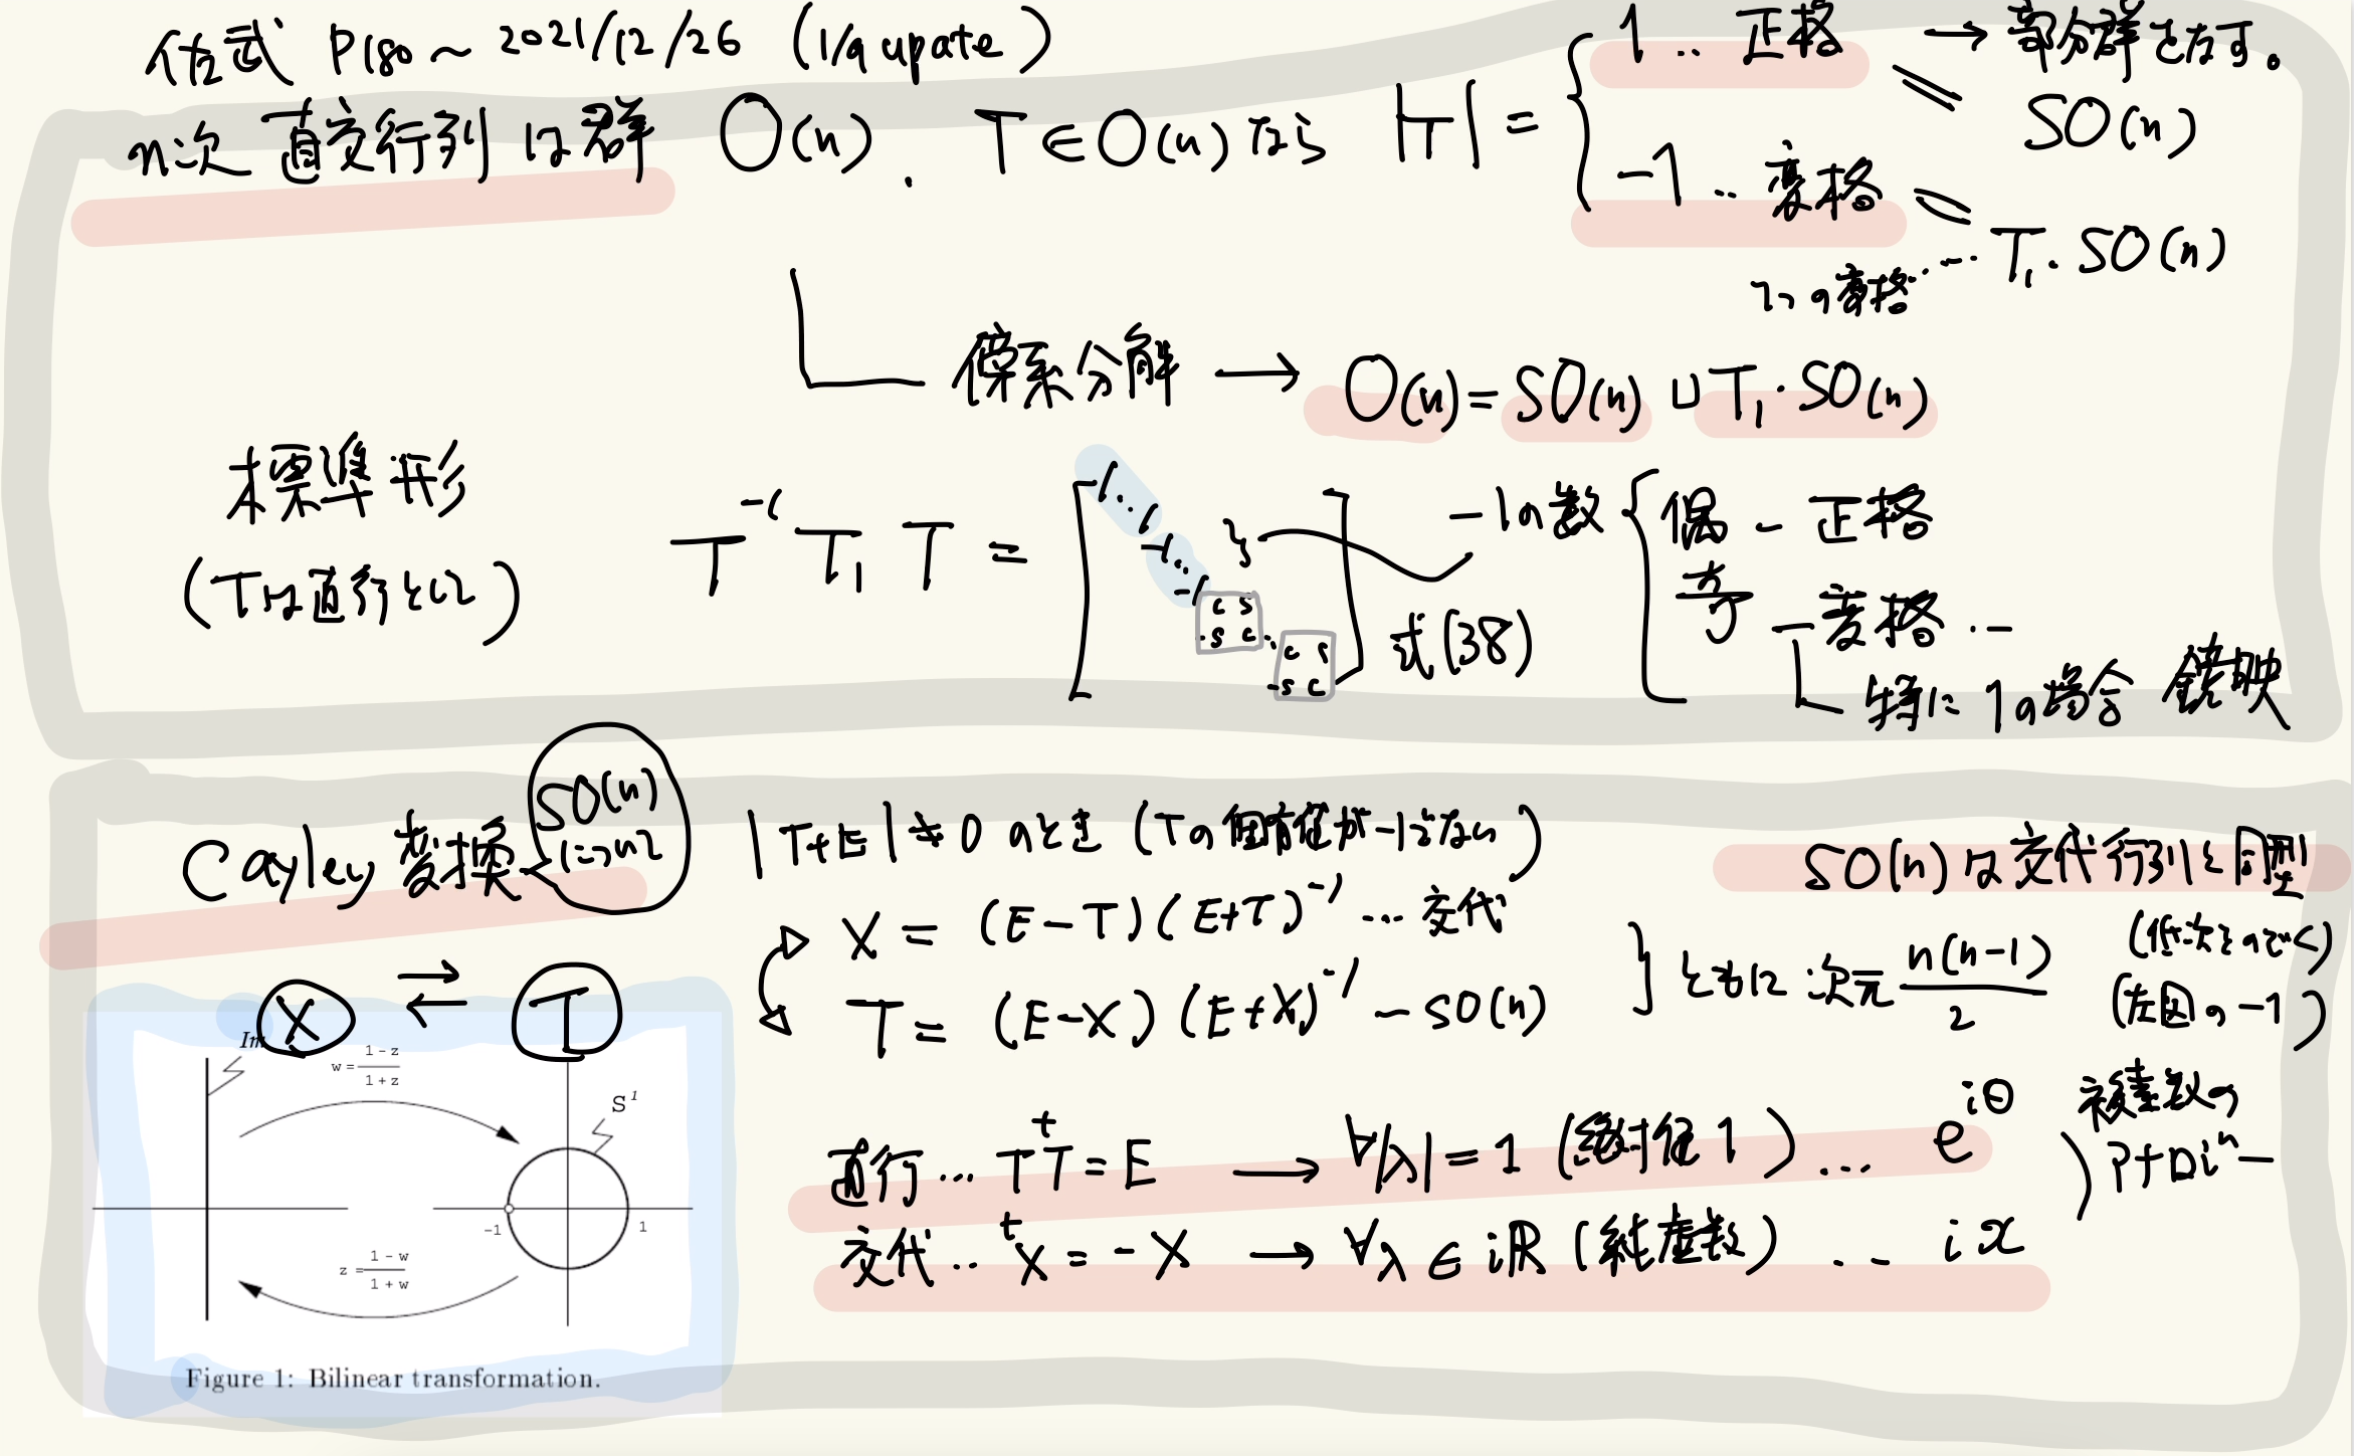 佐武 P180～ 2021/12/26 (1/9 upate)
n次 直交行列 は群 O(n). T∈O(n) なら |T| = { 1 .. 正格 → 部分群をなす。
SO(n)
-1 .. 変格
T₁・SO(n)
1つの変格 ...
傍系分解 → O(n) = SO(n) ⊔ T₁・SO(n)
標準形
(Tは直行として)
T⁻¹ T₁ T = [ 1 .. 1 -1 .. -1 c s -s c .. c s -s c ]
-1の数 { 偶 - 正格
奇 - 変格 ..
特に 1の場合 鏡映
式(38)
Cayley 変換
SO(n) について
|T+E| ≠ 0 のとき (Tの固有値が-1でない)
SO(n) は交代行列と同型
(低次をのぞく)
(左図の -1)
X = (E-T)(E+T)⁻¹ ... 交代
T = (E-X)(E+X)⁻¹ ~ SO(n)
} ともに 次元 n(n-1)/2
X ⇄ T
Im
w = 1-z / 1+z
S¹
-1
1
z = 1-w / 1+w
Figure 1: Bilinear transformation.
直行 ... T ᵗT = E → ∀|λ| = 1 (絶対値 1) ... e^{iθ}
交代 .. ᵗX = -X → ∀λ ∈ iℝ (純虚数) ... ix
複素数の
アナロジー